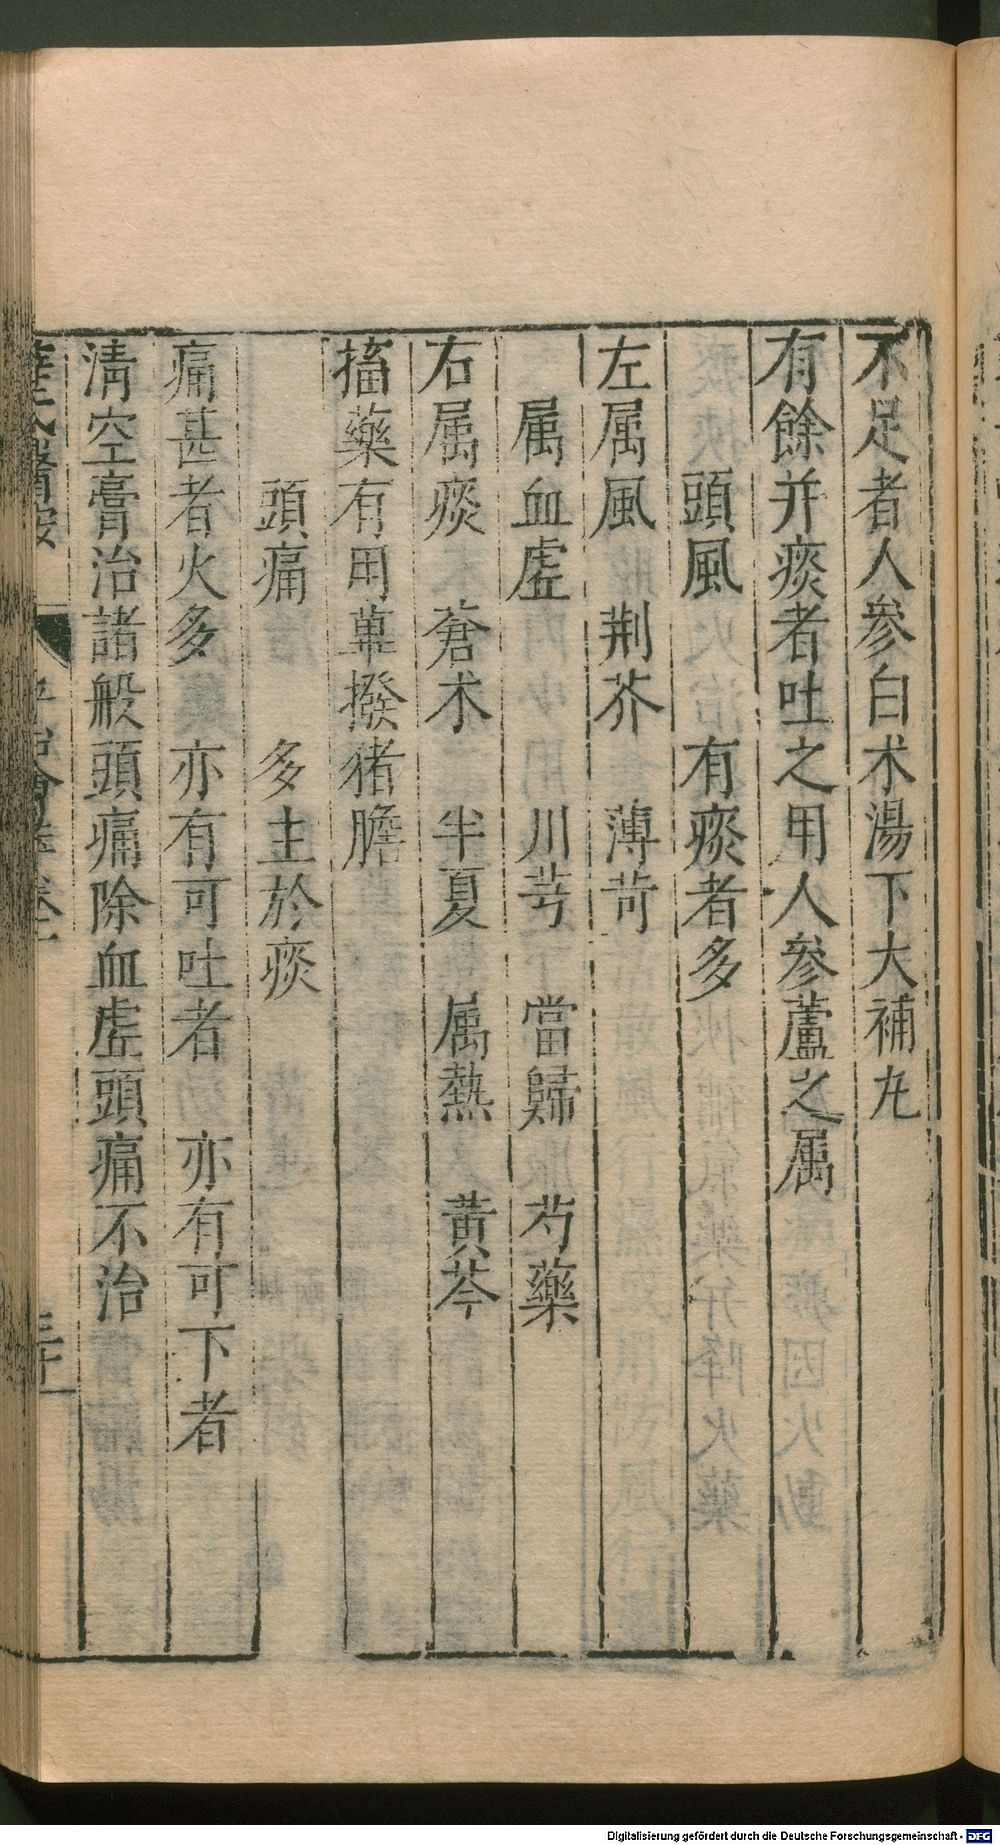 不足者人參白术湯下大補丸
有餘并痰者吐之用人參蘆之属
頭風　有痰者多
左属風　荆芥　薄苛
属血虚　川芎　當歸　芍藥
右属痰　蒼术　半夏　属熱　黄芩
搐藥有用蓽撥猪膽
頭痛　多主於痰
痛甚者火多　亦有可吐者　亦有可下者
清空膏治諸般頭痛除血虚頭痛不治
Digitalisierung gefördert durch die Deutsche Forschungsgemeinschaft - DFG